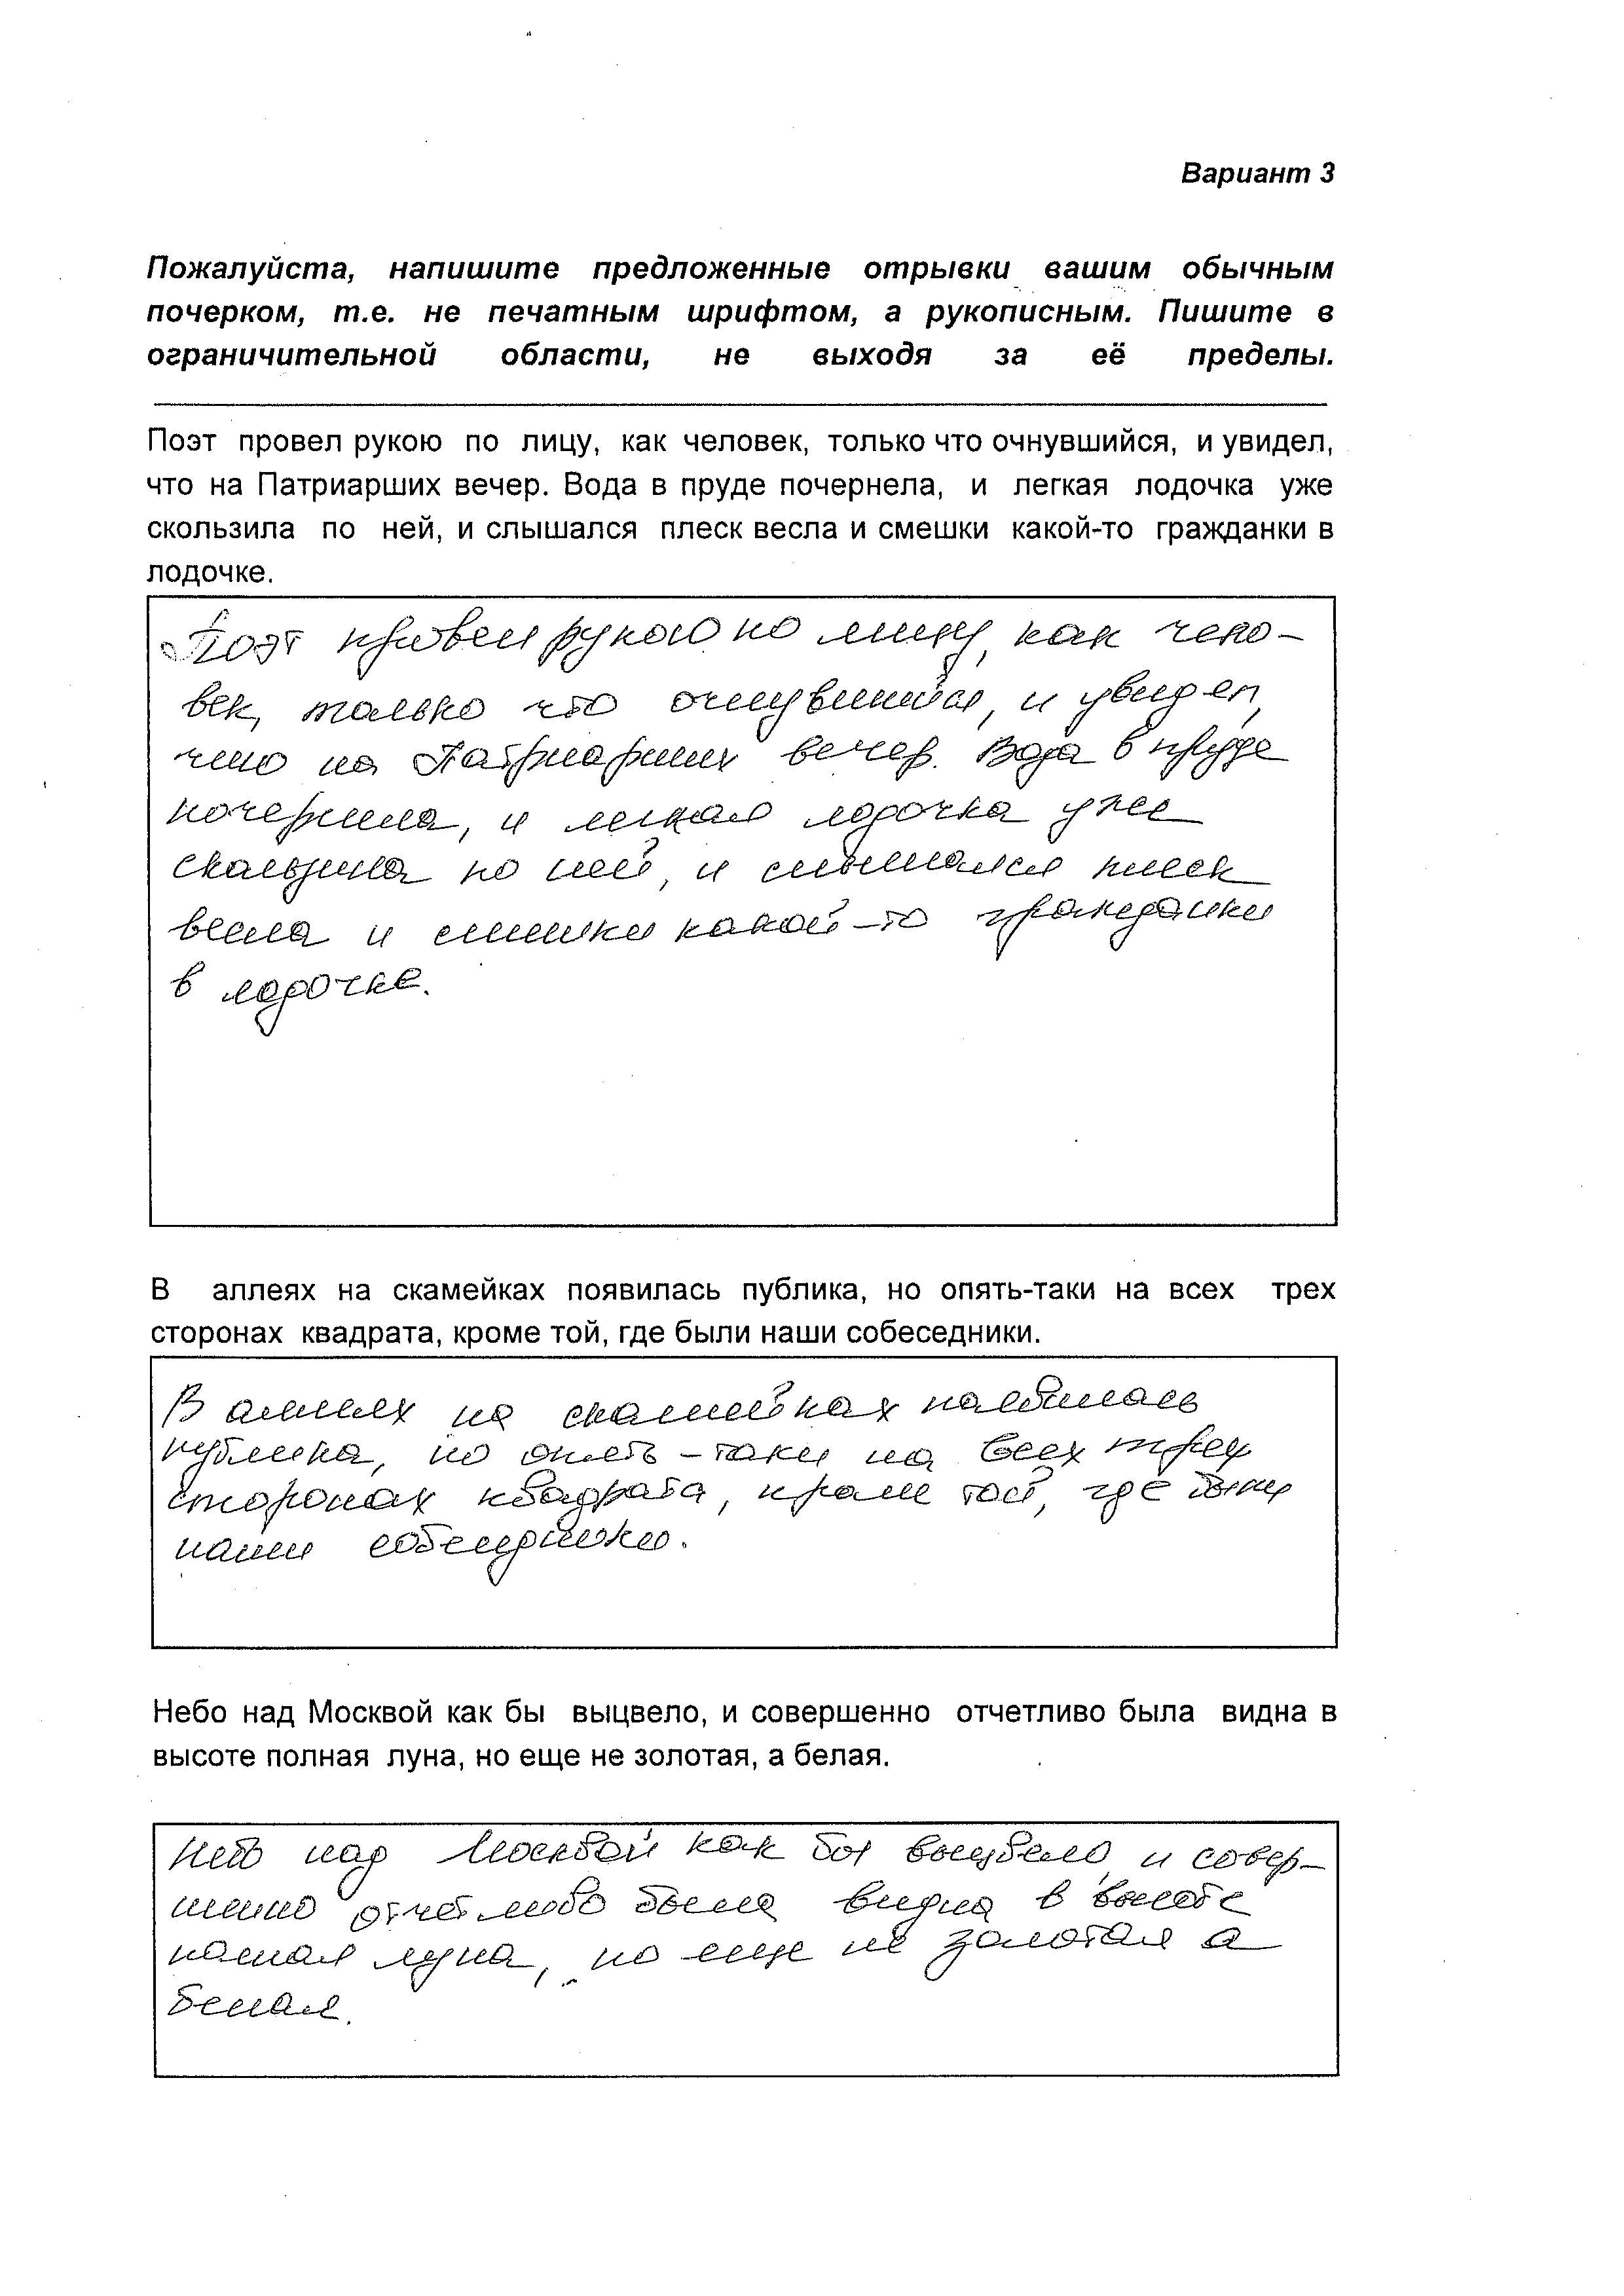 Вариант 3
Пожалуйста, напишите предложенные отрывки вашим обычным
почерком, т.е. не печатным шрифтом, а рукописным. Пишите в
ограничительной области, не выходя за её пределы.
Поэт провел рукою по лицу, как человек, только что очнувшийся, и увидел,
что на Патриарших вечер. Вода в пруде почернела, и легкая лодочка уже
скользила по ней, и слышался плеск весла и смешки какой-то гражданки в
лодочке.
Поэт провел рукою по лицу, как чело-
век, только что очнувшийся, и увидел,
что на Патриарших вечер. Вода в пруде
почернела, и легкая лодочка уже
скользила по ней, и слышался плеск
весла и смешки какой-то гражданки
в лодочке.
В аллеях на скамейках появилась публика, но опять-таки на всех трех
сторонах квадрата, кроме той, где были наши собеседники.
В аллеях на скамейках появилась
публика, но опять-таки на всех трех
сторонах квадрата, кроме той, где были
наши собеседники.
Небо над Москвой как бы выцвело, и совершенно отчетливо была видна в
высоте полная луна, но еще не золотая, а белая.
Небо над Москвой как бы выцвело, и совер-
шенно отчетливо была видна в высоте
полная луна, но еще не золотая а
белая.